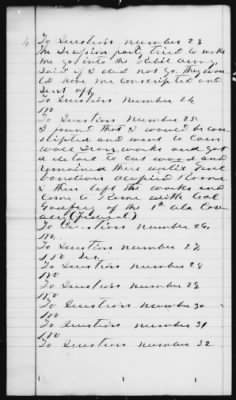 4
To Question number 23
The Scession party tried to make
me go into the Rebel army,
Said if I did not go they would
have me conscripted and
sent off
To Question number 24
no
To Question number 25
I found that I would be con
scripted and went to Corn
wall Iron works and got
a detail to cut wood and
remained there until Fred
occupied Rome
I then left the works and
come to Rome with Col
Godfrey of the 1st ala Cav
alry (Federal)
To Question number 26
no.
To Question number 27
no
To Question number 28
no
To Question number 29
no
To Question number 30
no
To Question number 31
no
To Question number 32